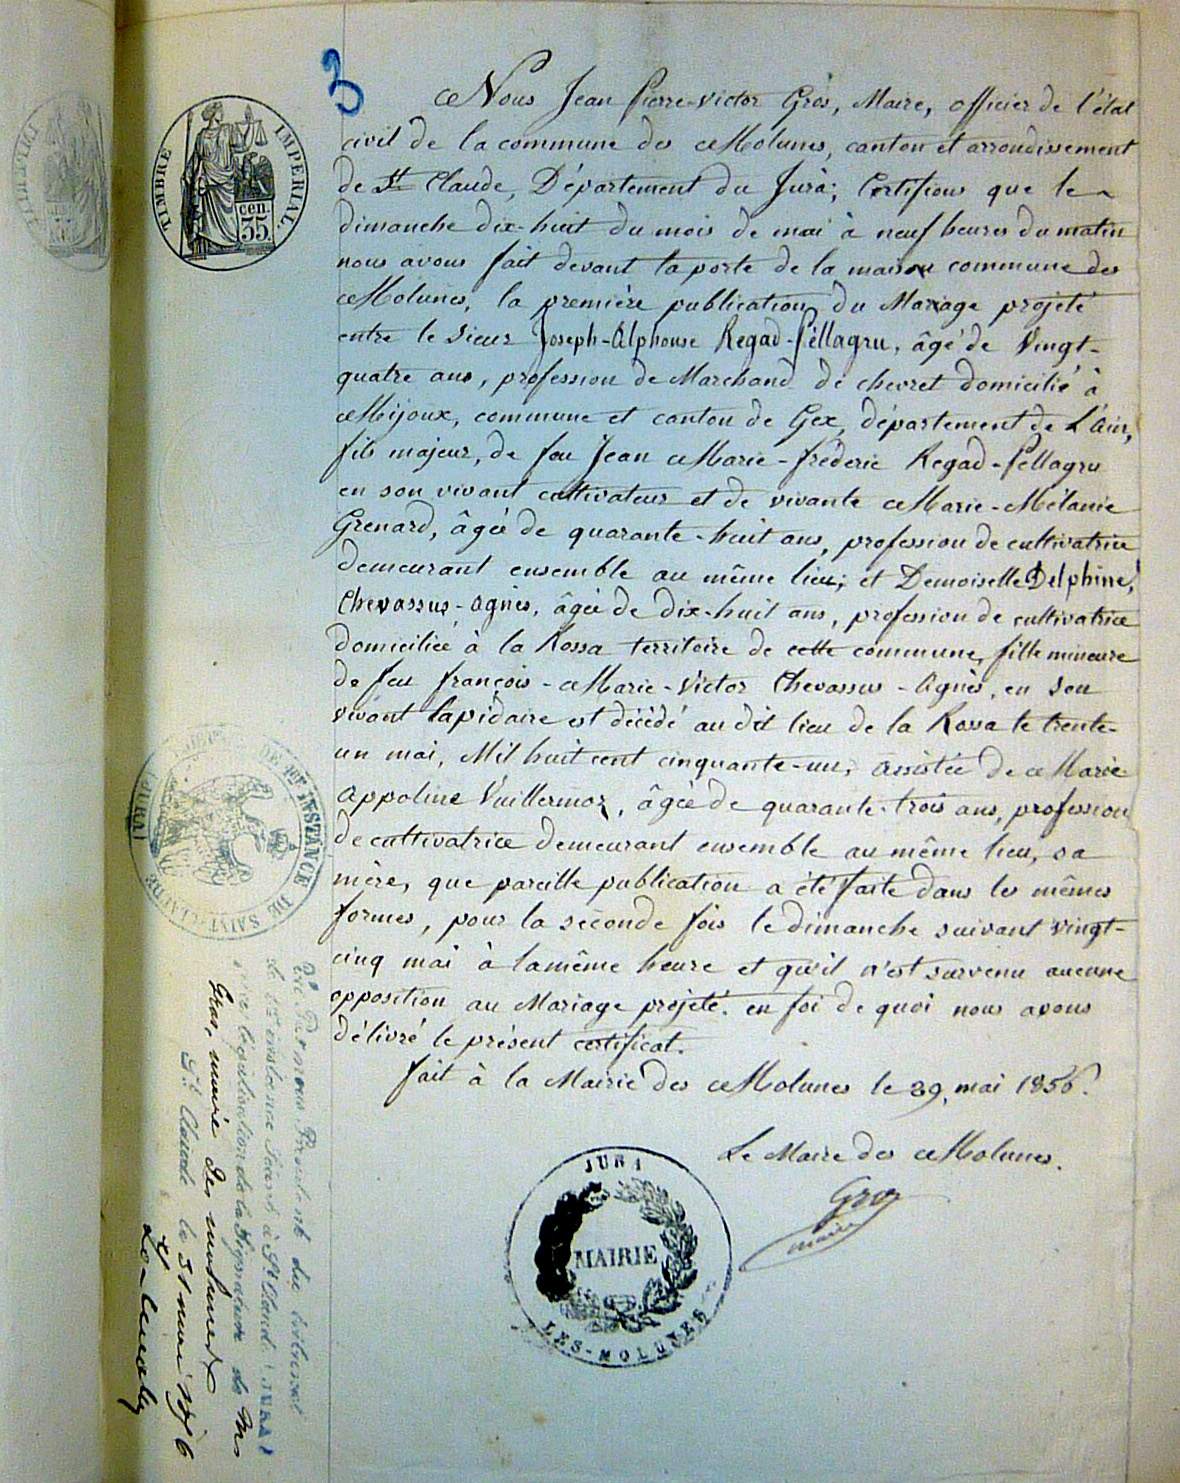 3
TIMBRE IMPERIAL
35 cen.
Nous Jean Pierre-Victor Gros, Maire, officier de l'état
civil de la commune des Molunes, canton et arrondissement
de St Claude, Département du Jura; Certifions que le
dimanche dix-huit du mois de mai à neuf heures du matin
nous avons fait devant la porte de la maison commune des
Molunes, la première publication du Mariage projeté
entre le sieur Joseph-Alphonse Regad-Pellagru, âgé de Vingt-
quatre ans, profession de Marchand de chevret domicilié à
Mijoux, commune et canton de Gex, département de L'Ain,
fils majeur, de feu Jean Marie-frédéric Regad-Pellagru
en son vivant cultivateur et de vivante Marie-Mélanie
Grenard, âgée de quarante-huit ans, profession de cultivatrice
demeurant ensemble au même lieu; et Demoiselle Delphine,
Chevassus-Agnès, âgée de dix-huit ans, profession de cultivatrice
domiciliée à la Rossa territoire de cette commune, fille mineure
de feu françois-Marie-Victor Chevassus-Agnès, en son
vivant lapidaire et décédé au dit lieu de la Rossa le trente-
un mai, Mil huit cent cinquante-un, assistée de Marie
Appoline Vuillermoz, âgée de quarante-trois ans, profession
de cultivatrice demeurant ensemble au même lieu, sa
mère, que pareille publication a été faite dans les mêmes
formes, pour la seconde fois le dimanche suivant vingt-
cinq mai à la même heure et qu'il n'est survenu aucune
opposition au Mariage projeté. en foi de quoi nous avons
délivré le présent certificat.
fait à la Mairie des Molunes le 29, mai 1856.
Le Maire des Molunes.
Gros
maire
JURA
MAIRIE
LES-MOLUNES
DE 1ere INSTANCE DE SAINT-CLAUDE (JURA)
Vu Par nous Président du tribunal
de 1ere instance séant à St Claude (JURA)
légalisation de la signature de Mr
Gros, maire des molunes
St Claude le 31 mai 1856